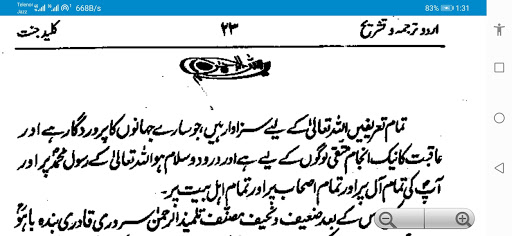 Telenor
Jazz
668B/s
83%
1:31
اردو ترجمہ و تشریح ۲۳ کلید جنت
تمام تعریفیں اللہ تعالیٰ کے لیے سزاوار ہیں، جو سارے جہانوں کا پروردگار ہے اور
عاقبت کا نیک انجام متقی لوگوں کے لیے ہے اور درود و سلام ہو اللہ تعالیٰ کے رسول محمدؐ پر اور
آپؐ کی تمام آل پر اور تمام اصحاب پر اور تمام اہل بیت پر۔
س کے بعد ضعیف و نحیف مصنف تلمیذ الرحمٰن سروری قادری بندہ باہوؒ